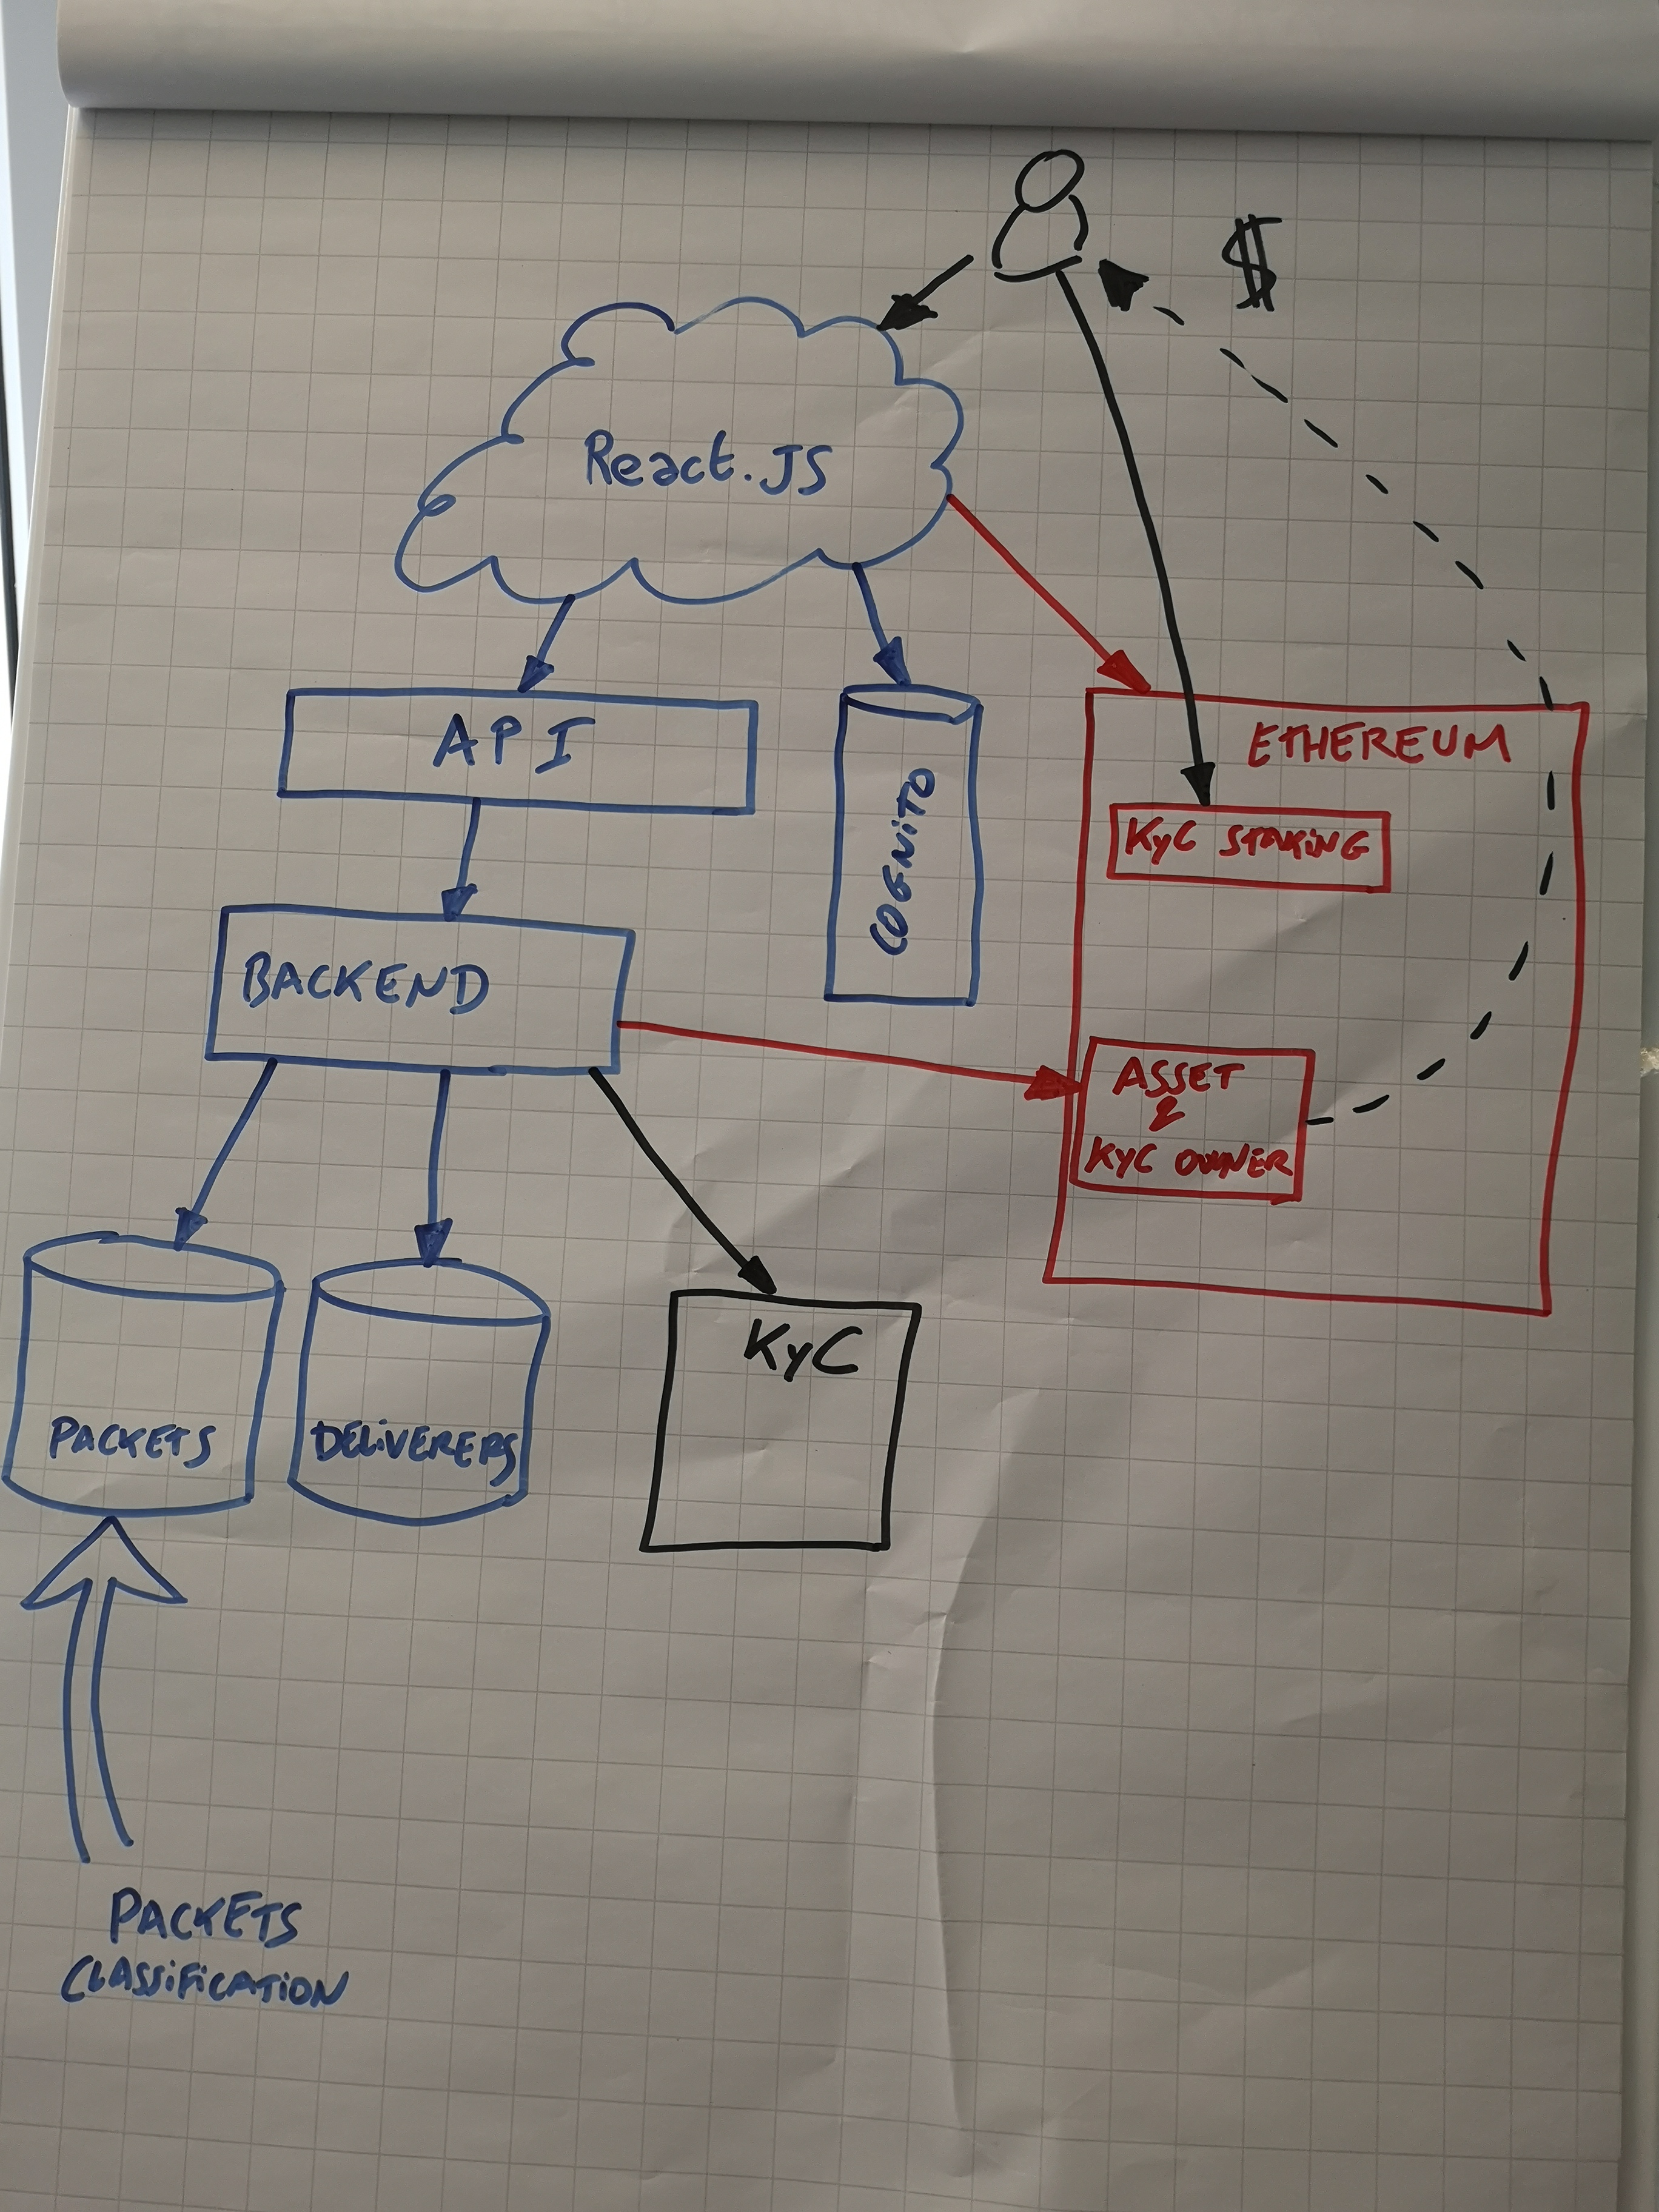 $
React.JS
API
COGNITO
ETHEREUM
KyC STAKING
BACKEND
ASSET
&
KyC OWNER
KyC
PACKETS
DELIVERERS
PACKETS
CLASSiFiCATiON